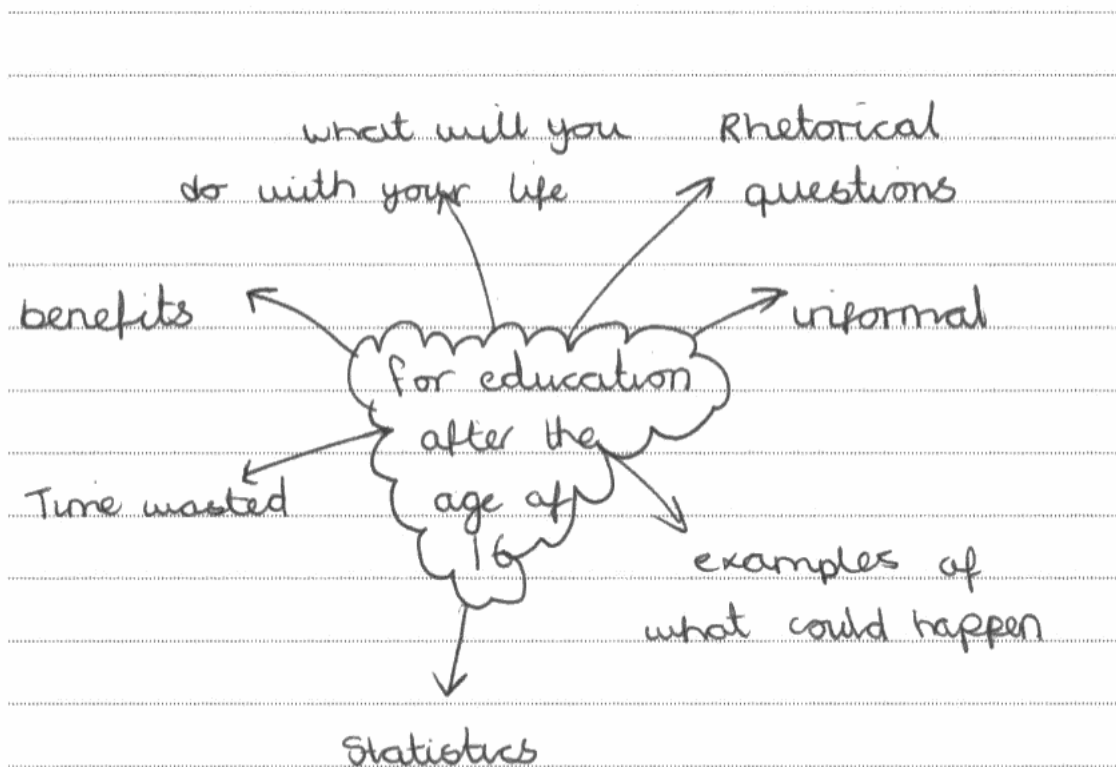 what will you
do with your life
Rhetorical
questions
benefits
informal
for education
after the
age of
16
Time wasted
examples of
what could happen
Statistics